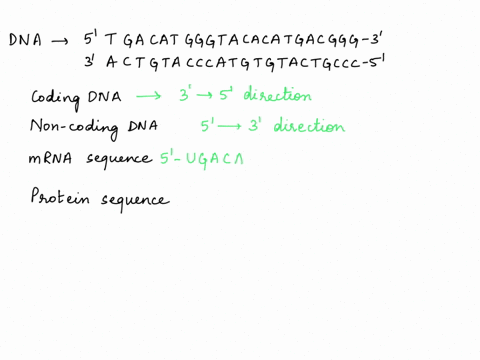 DNA → 5' TGACATGGGTACACATGACGGG-3'
3' ACTGTACCCATGTGTACTGCCC-5'
Coding DNA → 3' → 5' direction
Non-coding DNA 5' → 3' direction
mRNA sequence 5'-UGACA
Protein sequence